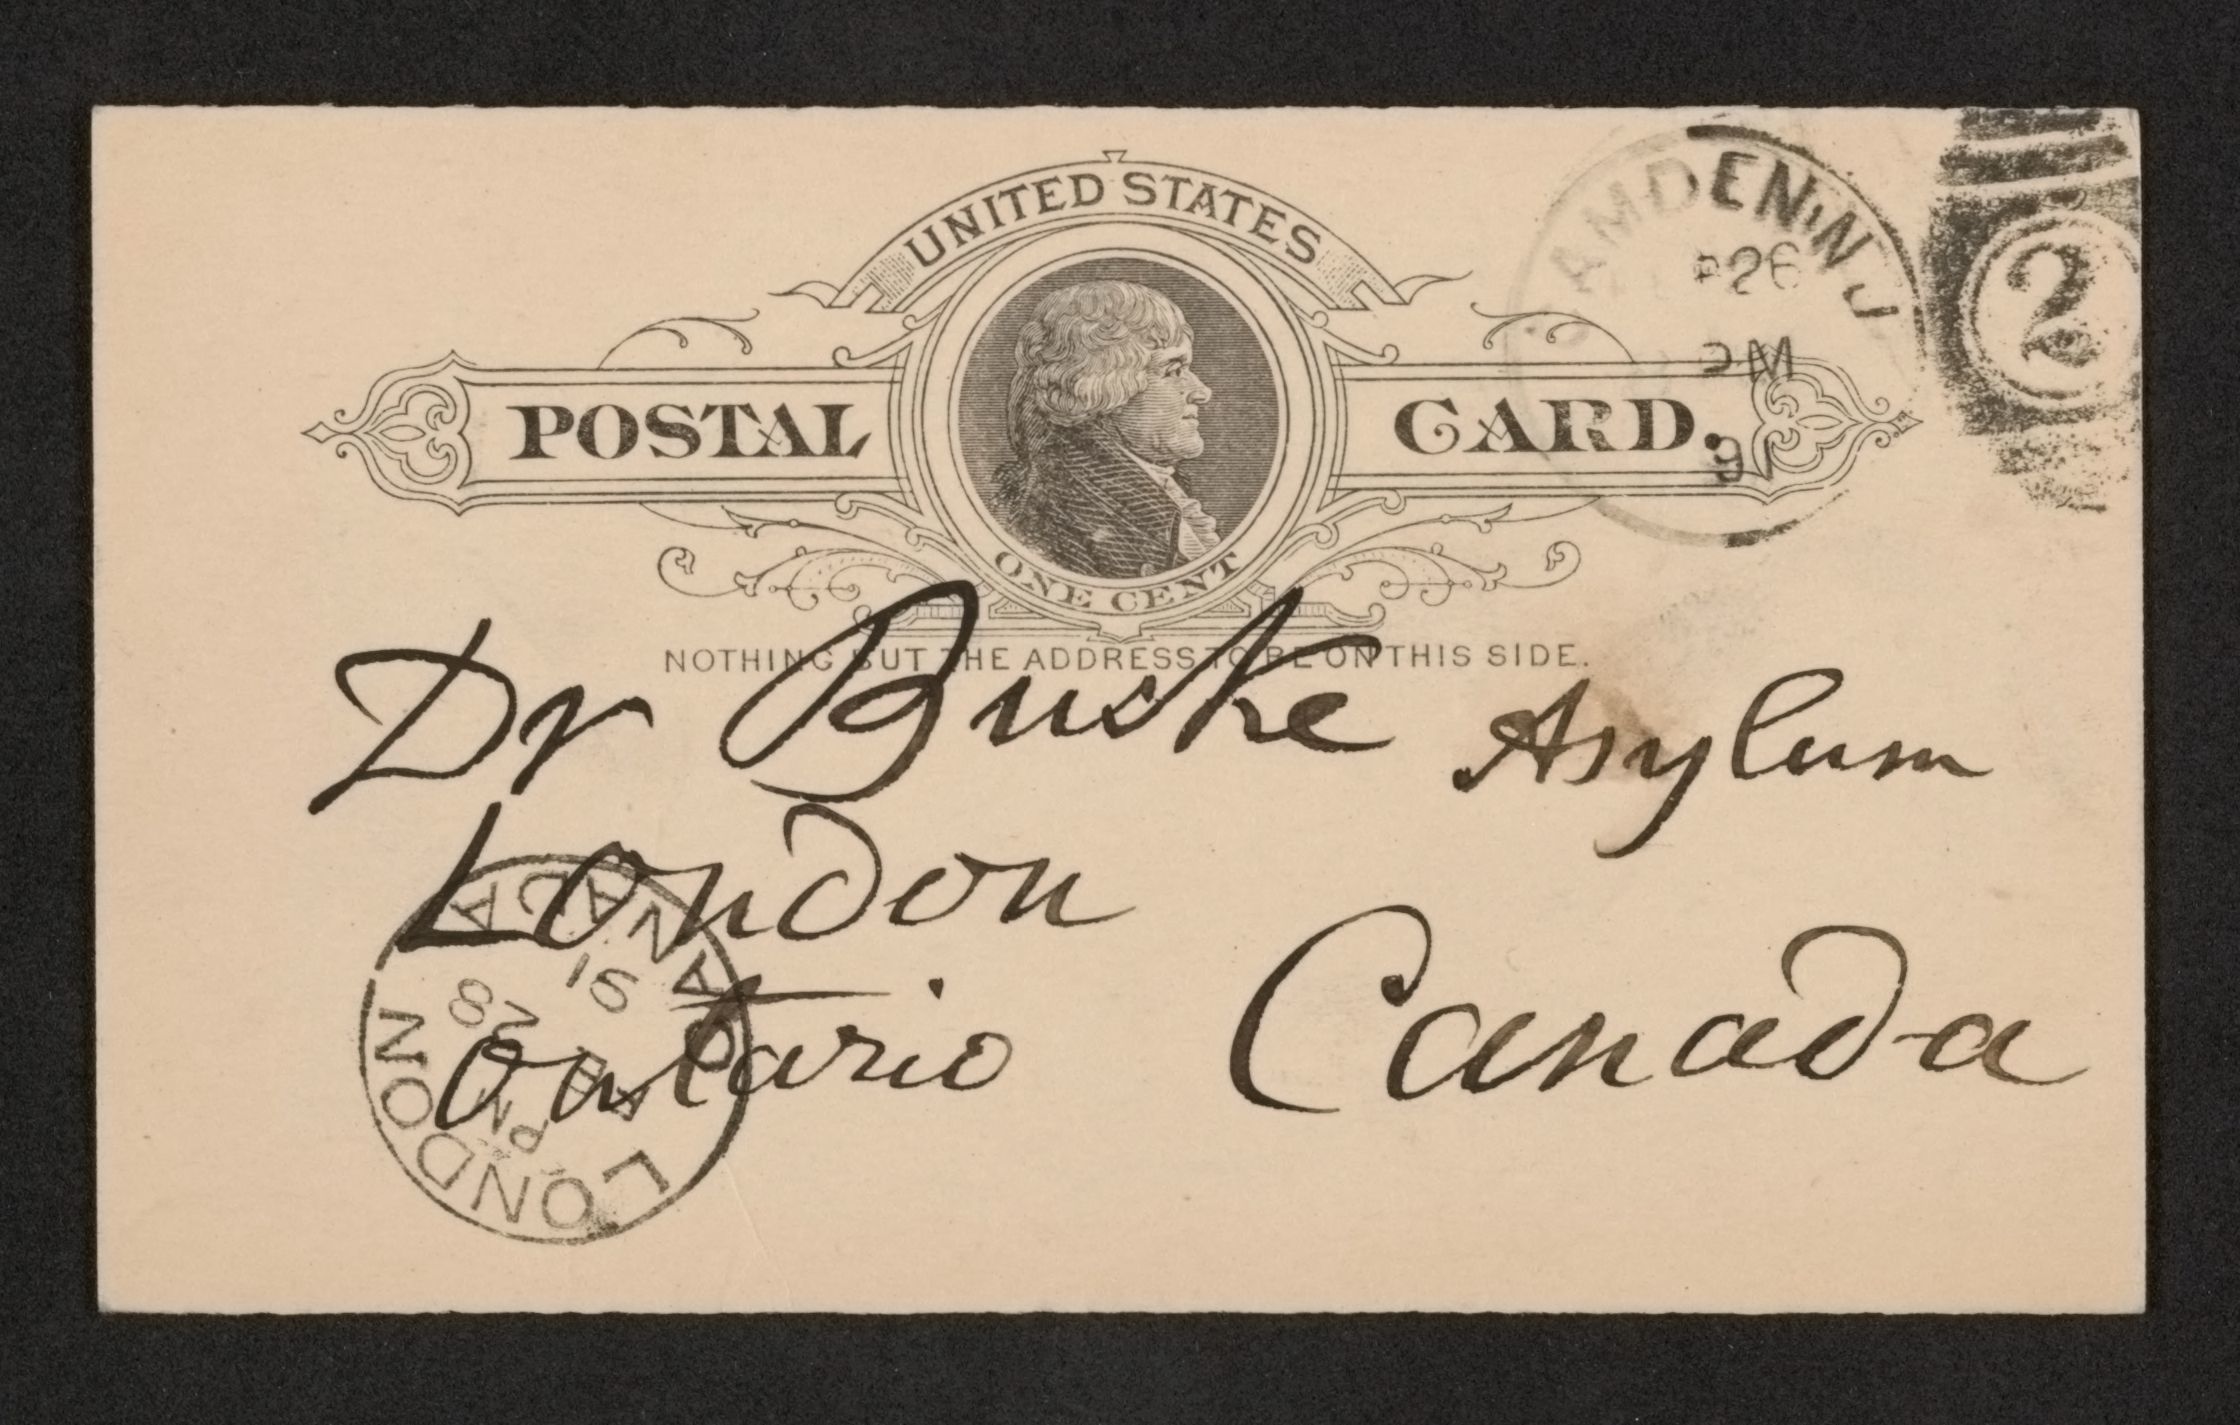 UNITED STATES
POSTAL CARD.
ONE CENT
NOTHING BUT THE ADDRESS TO BE ON THIS SIDE.
CAMDEN, N.J.
26
PM
91
2
Dr Bucke Asylum
London
Ontario Canada
LONDON
PM
28
91
CANADA